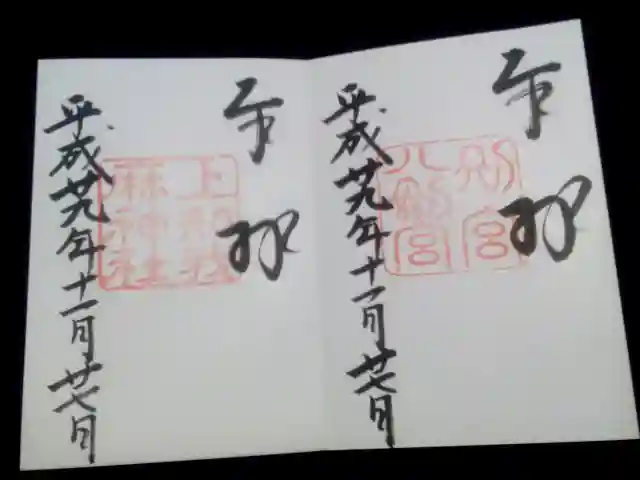 奉拝
別宮
八幡宮
平成廿九年十一月廿七日
奉拝
麻神社
平成廿九年十一月廿七日